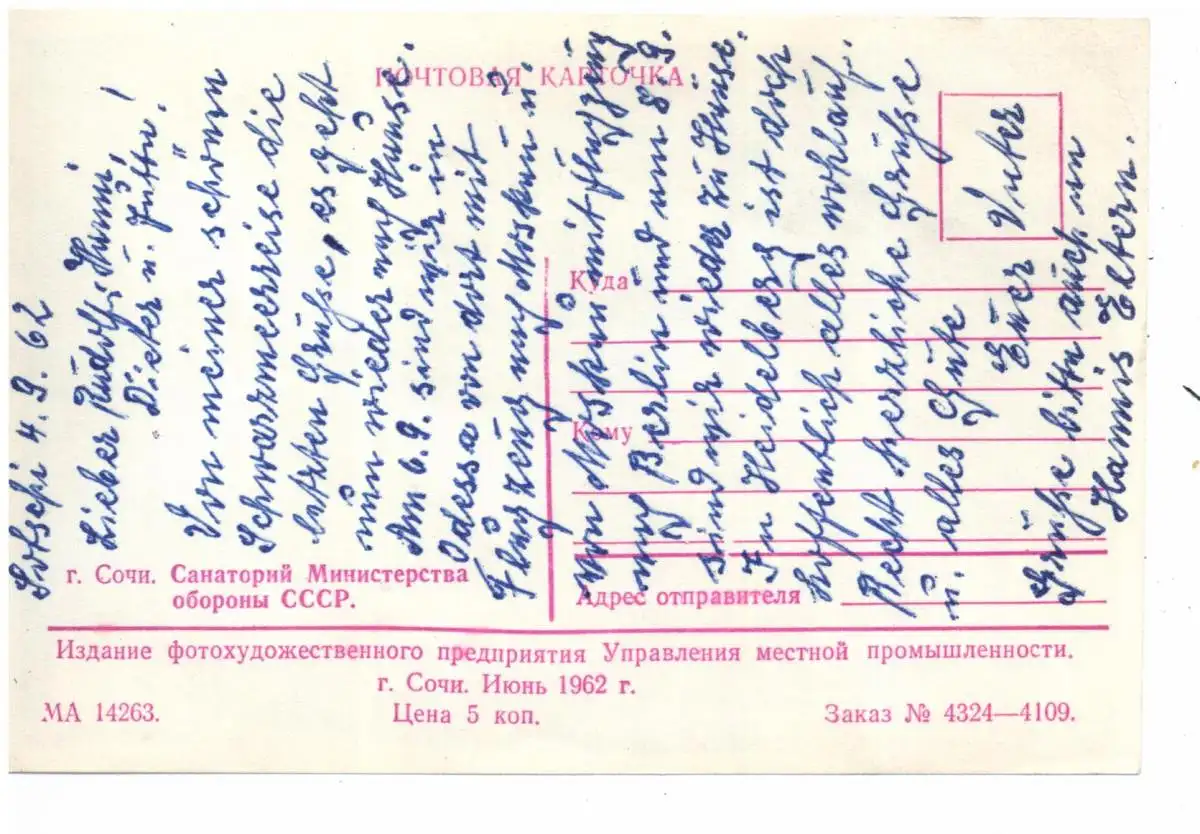 ПОЧТОВАЯ КАРТОЧКА
Sotschi 4.9.62
Lieber Rudolf, Hanni,
Dieter u. Jutta!
Von meiner schönen
Schwarzmeerreise die
letzten Grüsse, es geht
nun wieder nach Hause.
Am 6.9. sind wir in
Odessa von dort mit
Flugzeug nach Moskau u.
von Moskau mit Flugzeug
nach Berlin und am 8.9.
sind wir wieder zu Hause.
In Heidelberg ist doch
hoffentlich alles wohlauf.
Recht herzliche Grüsse
u. alles Gute
Euer Vater
Grüsse bitte auch an
Hannis Eltern.
Куда
Кому
Адрес отправителя
г. Сочи. Санаторий Министерства
обороны СССР.
Издание фотохудожественного предприятия Управления местной промышленности.
г. Сочи. Июнь 1962 г.
МА 14263.
Цена 5 коп.
Заказ № 4324—4109.